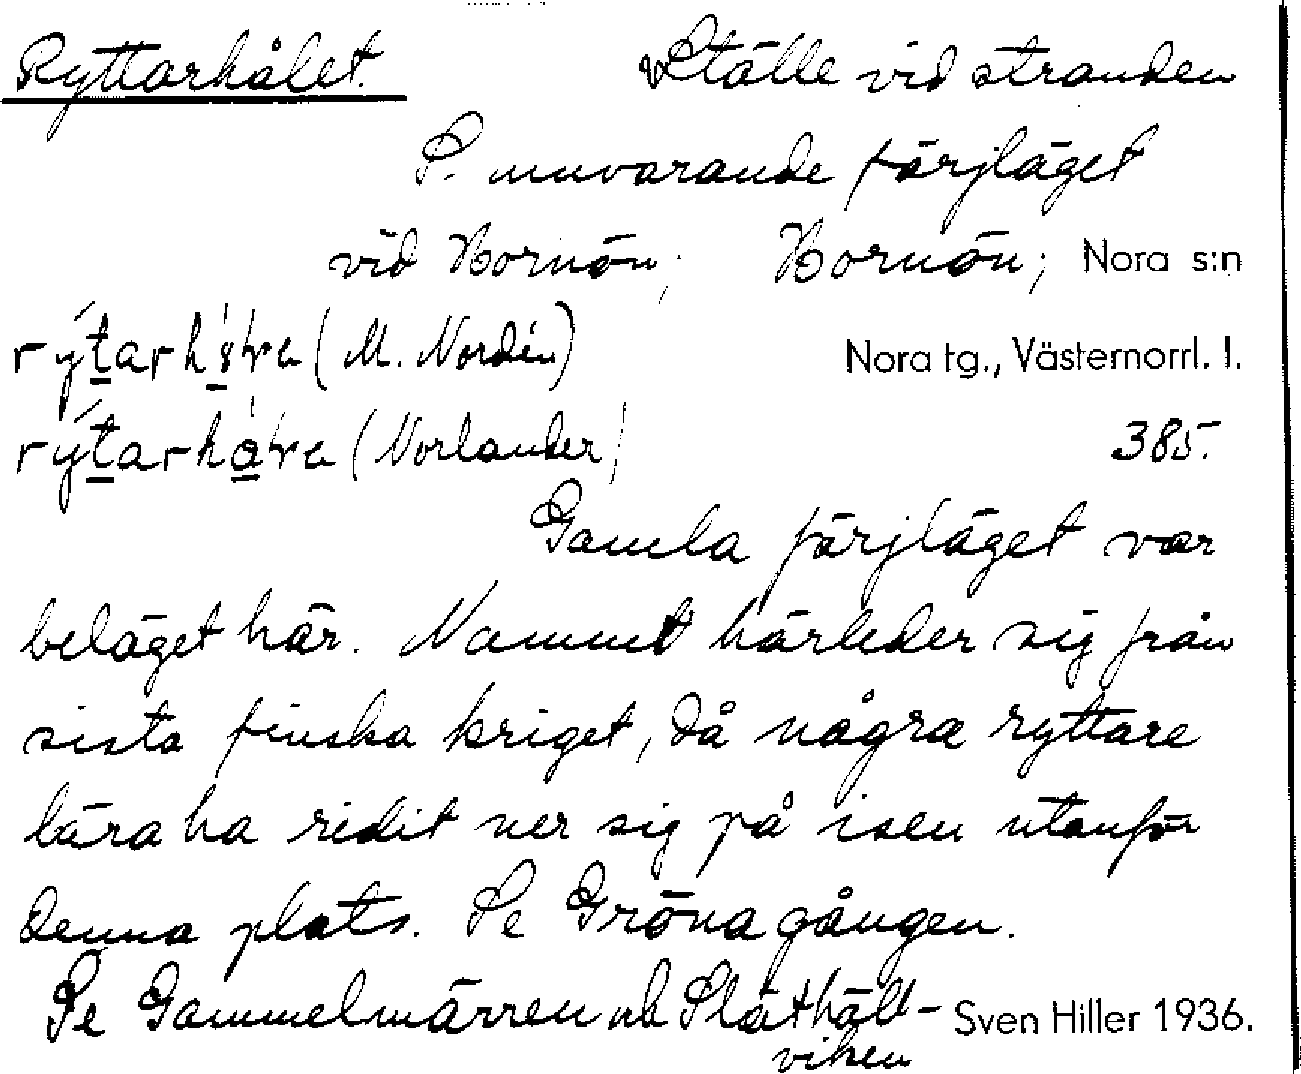 Ryttarhålet. Ställe vid stranden
S. nuvarande färjläget
vid Hornön; Hornön; Nora s:n
(M. Nordin) Nora tg., Västernorrl. l.
(Norlander) 385.
Gamla färjläget var
beläget här. Namnet härleder sig från
sista finska kriget, då några ryttare
lära ha ridit ner sig på isen utanför
denna plats. Se Gröna gången.
Se Gammelmärren och Släthäll-
viken Sven Hiller 1936.